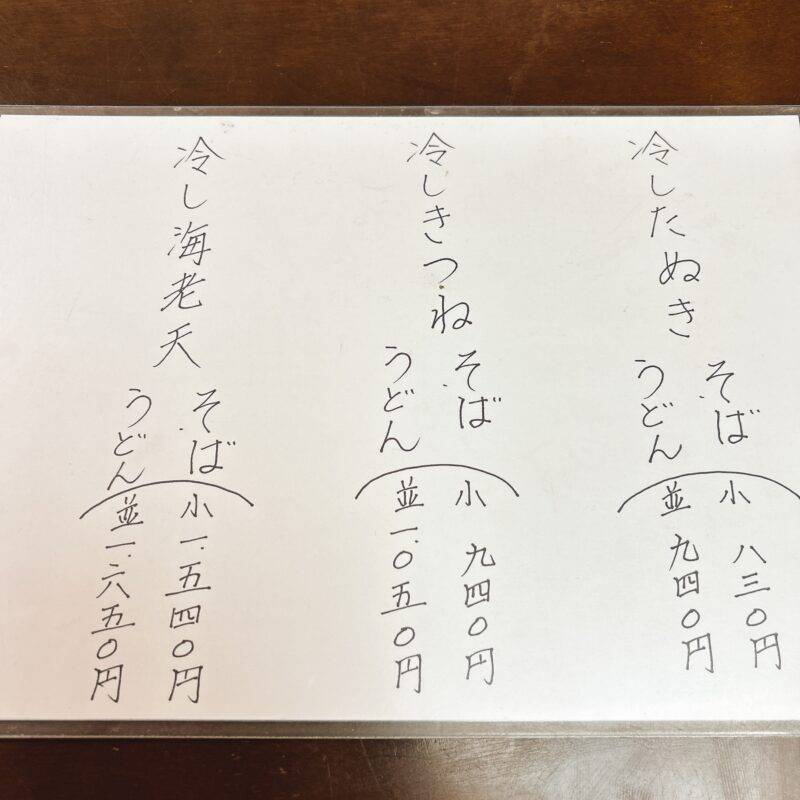 冷したぬき
そば
うどん
小 八三〇円
並 九四〇円
冷しきつね
そば
うどん
小 九四〇円
並 一.〇五〇円
冷し海老天
そば
うどん
小 一.五四〇円
並 一.六五〇円